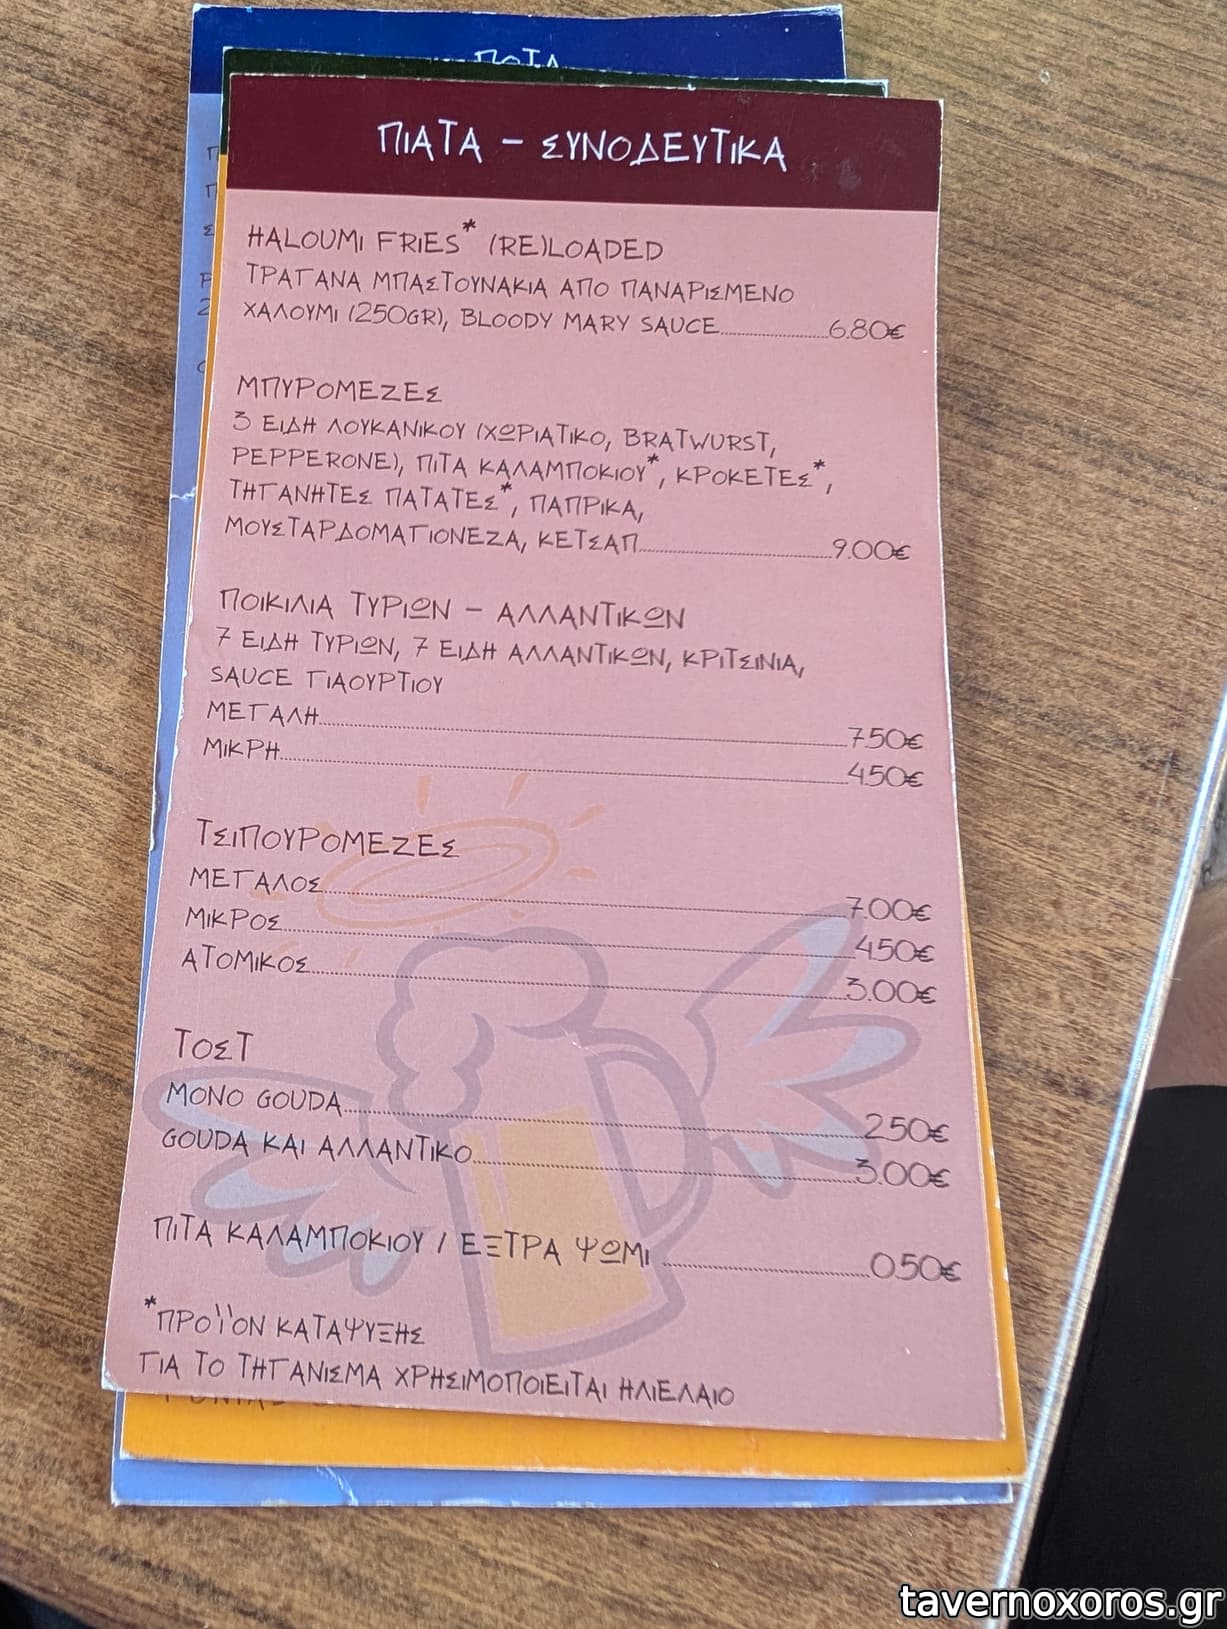 ΠΟΤΑ
ΠΙΑΤΑ - ΣΥΝΟΔΕΥΤΙΚΑ
HALOUMI FRIES* (RE)LOADED
ΤΡΑΓΑΝΑ ΜΠΑΣΤΟΥΝΑΚΙΑ ΑΠΟ ΠΑΝΑΡΙΣΜΕΝΟ
ΧΑΛΟΥΜΙ (250GR), BLOODY MARY SAUCE......6.80€
ΜΠΥΡΟΜΕΖΕΣ
3 ΕΙΔΗ ΛΟΥΚΑΝΙΚΟΥ (ΧΩΡΙΑΤΙΚΟ, BRATWURST,
PEPPERONE), ΠΙΤΑ ΚΑΛΑΜΠΟΚΙΟΥ*, ΚΡΟΚΕΤΕΣ*,
ΤΗΓΑΝΗΤΕΣ ΠΑΤΑΤΕΣ*, ΠΑΠΡΙΚΑ,
ΜΟΥΣΤΑΡΔΟΜΑΓΙΟΝΕΖΑ, ΚΕΤΣΑΠ......9.00€
ΠΟΙΚΙΛΙΑ ΤΥΡΙΩΝ - ΑΛΛΑΝΤΙΚΩΝ
7 ΕΙΔΗ ΤΥΡΙΩΝ, 7 ΕΙΔΗ ΑΛΛΑΝΤΙΚΩΝ, ΚΡΙΤΣΙΝΙΑ,
SAUCE ΓΙΑΟΥΡΤΙΟΥ
ΜΕΓΑΛΗ......7.50€
ΜΙΚΡΗ......4.50€
ΤΣΙΠΟΥΡΟΜΕΖΕΣ
ΜΕΓΑΛΟΣ......7.00€
ΜΙΚΡΟΣ......4.50€
ΑΤΟΜΙΚΟΣ......3.00€
ΤΟΣΤ
ΜΟΝΟ GOUDA......2.50€
GOUDA ΚΑΙ ΑΛΛΑΝΤΙΚΟ......3.00€
ΠΙΤΑ ΚΑΛΑΜΠΟΚΙΟΥ / ΕΞΤΡΑ ΨΩΜΙ ......0.50€
*ΠΡΟΪΟΝ ΚΑΤΑΨΥΞΗΣ
ΓΙΑ ΤΟ ΤΗΓΑΝΙΣΜΑ ΧΡΗΣΙΜΟΠΟΙΕΙΤΑΙ ΗΛΙΕΛΑΙΟ
tavernoxoros.gr